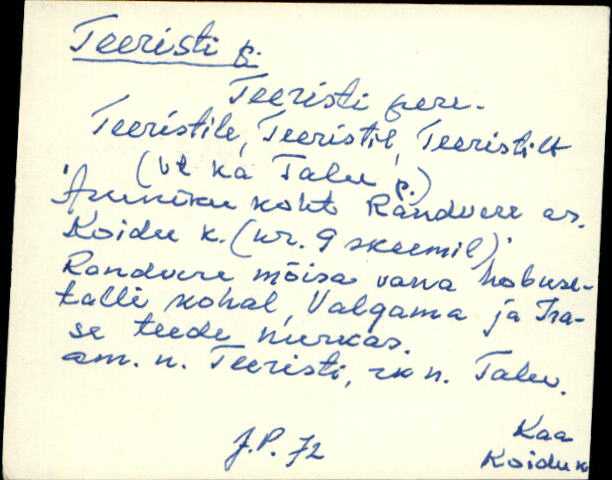 Teeristi p.
Teeristi pere.
Teeristile, Teeristil, Teeristilt
(vt ka Talu p.)
Asuniku koht Randvere as.
Koidu k. (nr. 9 skeemil).
Randvere mõisa vana hobuse-
talli kohal, Valgama ja Ira-
se teede nurkas.
am. n. Teeristi, rk n. Talu.
J.P. 72
Kaa
Koidu k